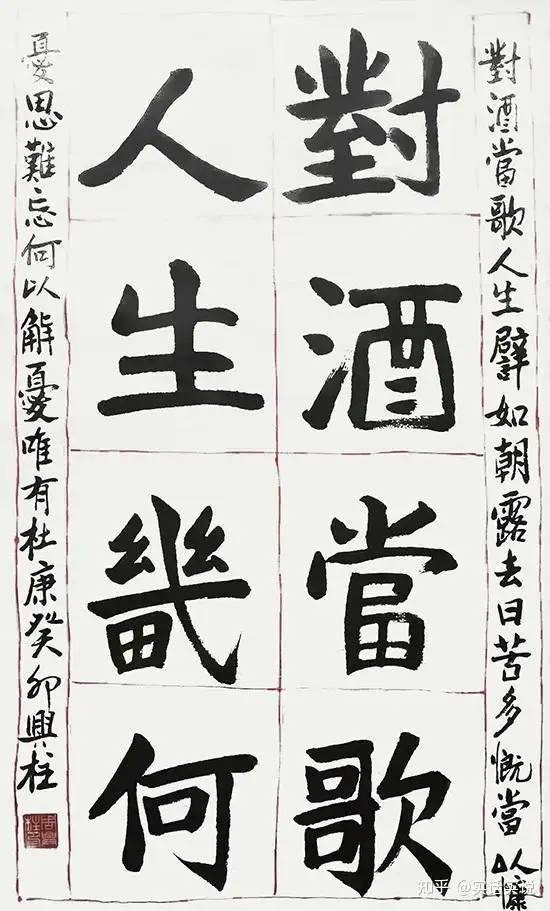 對酒當歌
人生畿何
對酒當歌人生譬如朝露去日苦多慨當以慷
憂思難忘何以解憂唯有杜康癸卯興柱
知乎 @实话实说